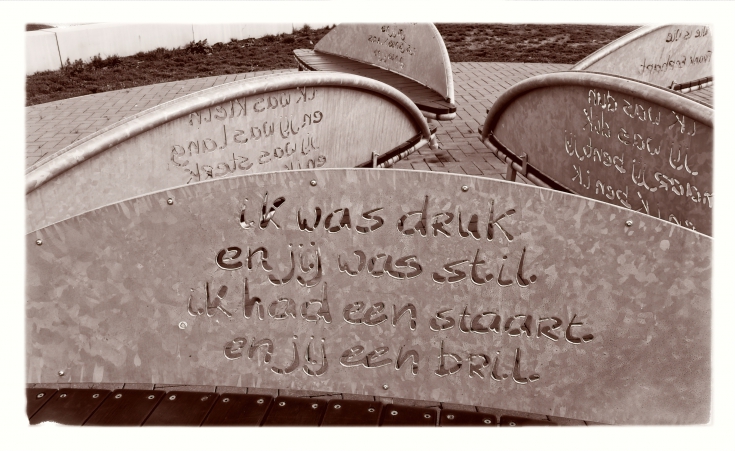 ik was klein
en jij was lang
jij was sterk
ik was dun
jij was dik
maar jij bent jij
ik ben ik
ik was druk
en jij was stil.
ik had een staart.
en jij een bril.